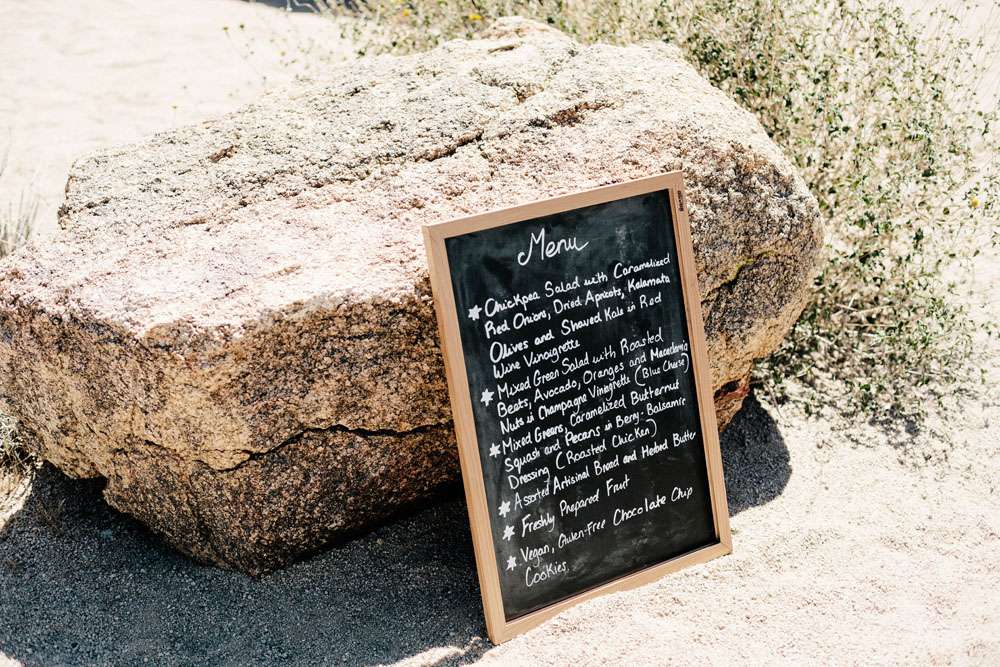 Menu
* Chickpea Salad with Caramelized
Red Onions, Dried Apricots, Kalamata
Olives and Shaved Kale in Red
Wine Vinaigrette
* Mixed Green Salad with Roasted
Beets, Avocado, Oranges and Macadamia
Nuts in Champagne Vinaigrette (Blue Cheese)
* Mixed Greens, Caramelized Butternut
Squash and Pecans in Berry-Balsamic
Dressing (Roasted Chicken)
* Assorted Artisinal Bread and Herbed Butter
* Freshly Prepared Fruit
* Vegan, Gluten-Free Chocolate Chip
Cookies.